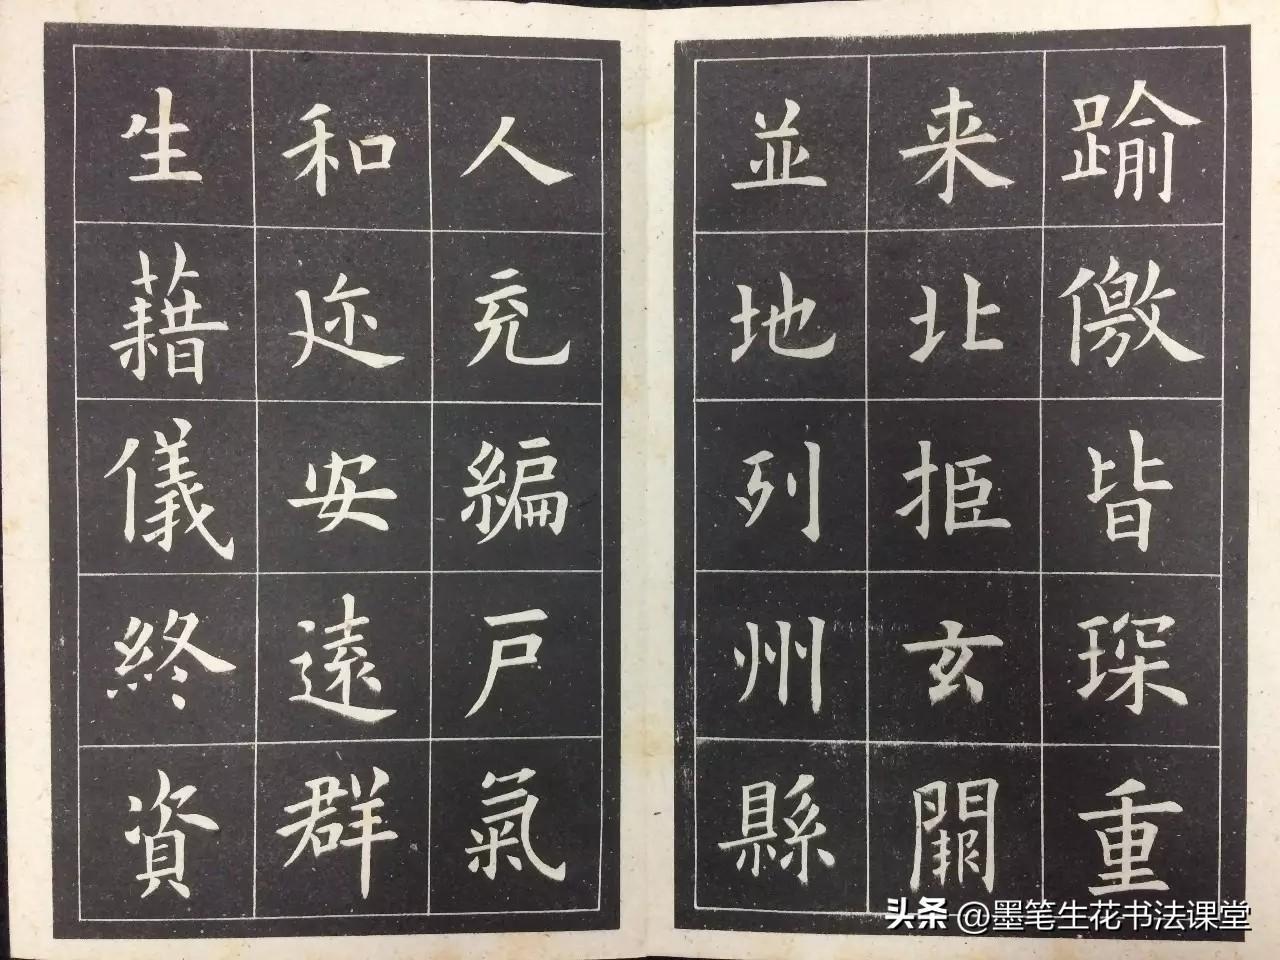 踰儌皆琛重
来北拒玄闕
並地列州縣
人充編戶氣
和迩安遠群
生藉儀終資
头条 @墨笔生花书法课堂